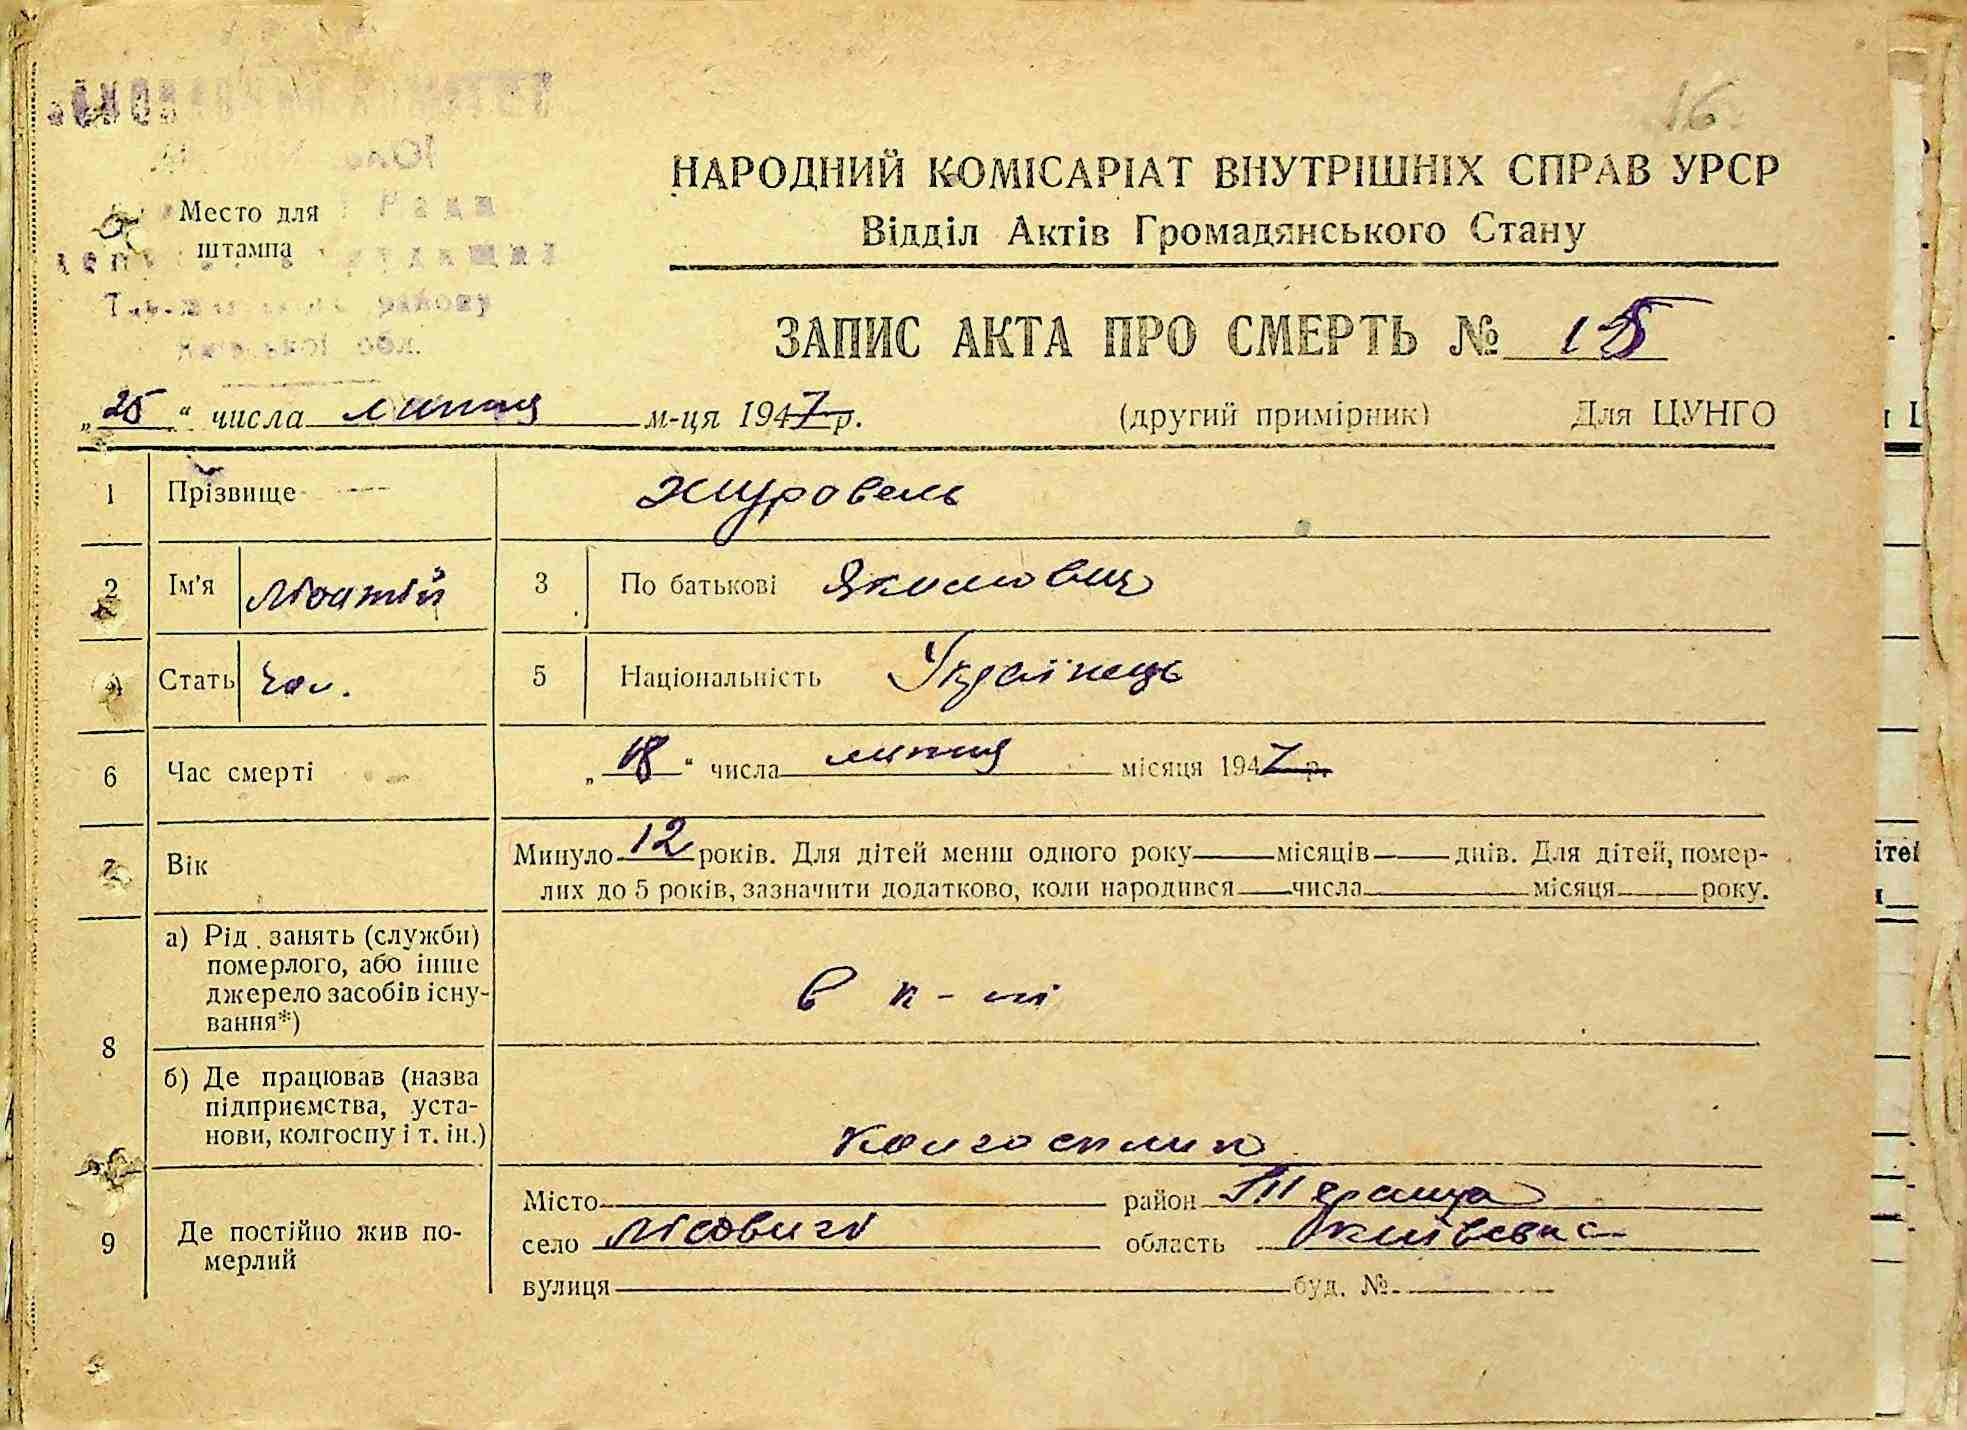 16
НАРОДНИЙ КОМІСАРІАТ ВНУТРІШНІХ СПРАВ УРСР
Відділ Актів Громадянського Стану
Место для
штампа
Рада
району
обл.
ЗАПИС АКТА ПРО СМЕРТЬ № 15
„25“ числа липня м-ця 1947 р. (другий примірник) Для ЦУНГО
1 Прізвище Журовель
2 Ім'я Матвій 3 По батькові Якимович
4 Стать чол. 5 Національність Українець
6 Час смерті „18“ числа липня місяця 1947 р.
7 Вік Минуло 12 років. Для дітей менш одного року місяців днів. Для дітей, помер-
лих до 5 років, зазначити додатково, коли народився числа місяця року.
8 а) Рід занять (служби)
померлого, або інше
джерело засобів існу-
вання*)
в к-пі
б) Де працював (назва
підприємства, уста-
нови, колгоспу і т. ін.)
колгоспник
9 Де постійно жив по-
мерлий
Місто район Тараща
село Лісовичі область Київська
вулиця буд. №